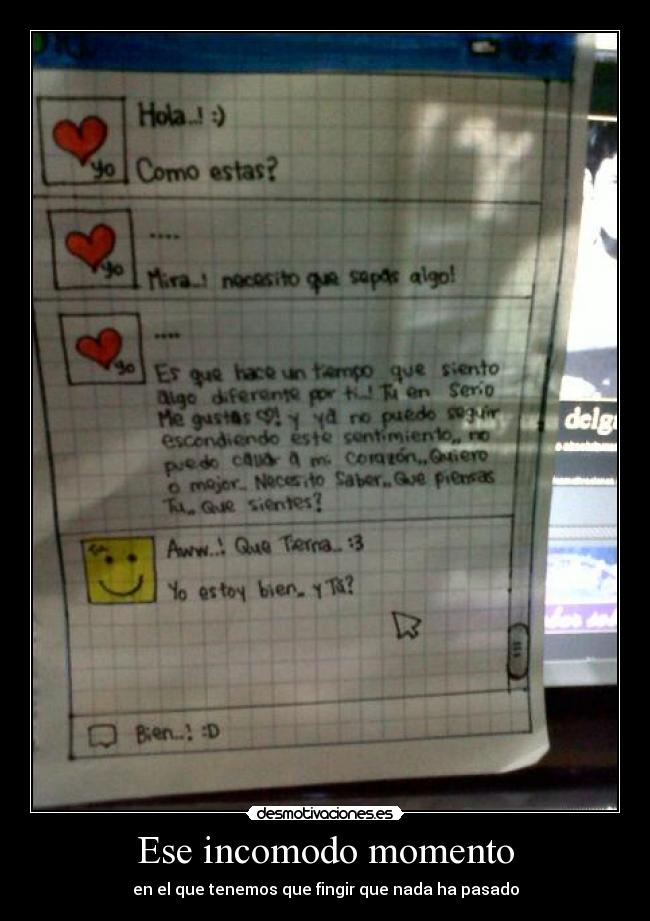 Hola..! :)
yo
Como estas?
....
yo
Mira..! necesito que sepas algo!
....
yo
Es que hace un tiempo que siento
algo diferente por ti..! Tu en Serio
Me gustas ♡! y ya no puedo seguir
escondiendo este sentimiento,, no
puedo callar a mi corazón,, Quiero
o mejor.. Necesito Saber,, Que piensas
Tu,, Que sientes?
Tu
Aww..! Que Tierna.. :3
Yo estoy bien.. y Tú?
Bien..! :D
delg
desmotivaciones.es
Ese incomodo momento
en el que tenemos que fingir que nada ha pasado